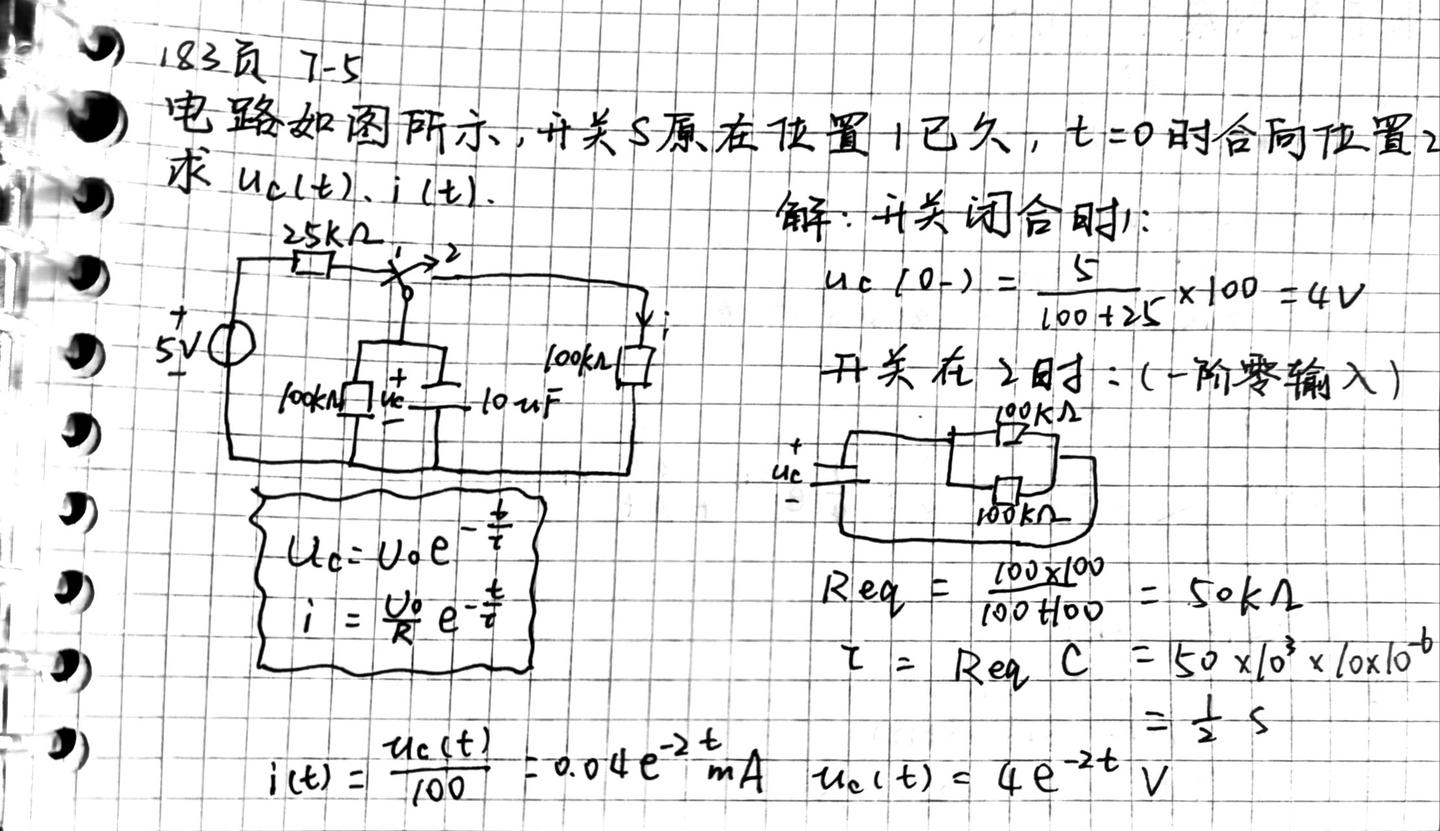 183页 7-5
电路如图所示,开关S原在位置1已久,t=0时合向位置2
求 uc(t)、i(t).
25kΩ
1
2
+
5V
-
100kΩ
+
uc
-
10uF
100kΩ
i
Uc=U0e^{-t/τ}
i = U0/R e^{-t/τ}
解:开关闭合时1:
uc(0-) = 5/(100+25) ×100 =4V
开关在2时:(一阶零输入)
100kΩ
+
uc
-
100kΩ
Req = (100×100)/(100+100) = 50kΩ
τ = Req C = 50×10³×10×10^{-6}
= 1/2 s
i(t) = uc(t)/100 = 0.04e^{-2t} mA
uc(t) = 4e^{-2t} V